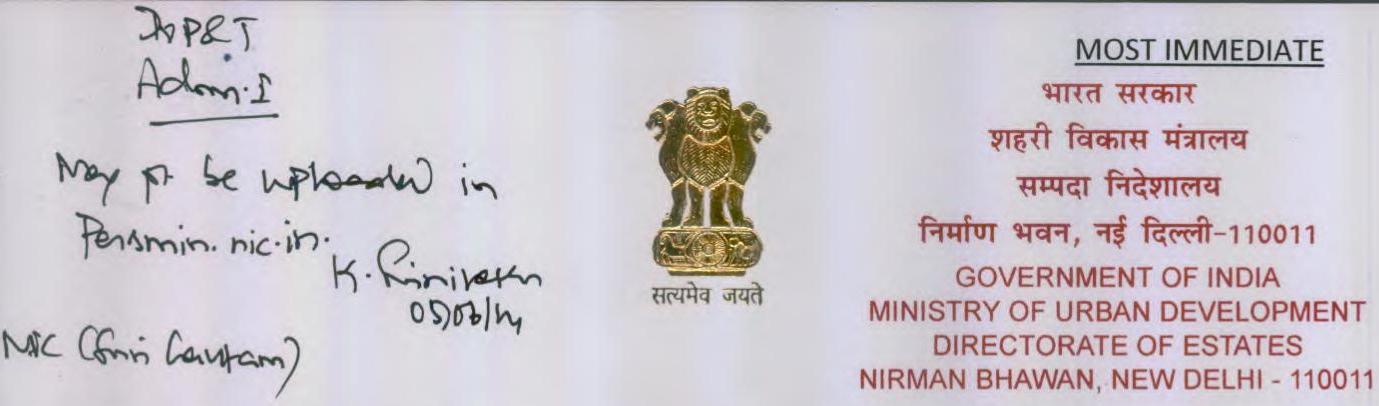 DoP&T
Admn.I
May pl be uploaded in
Persmin.nic.in.
K. Srinivasan
05/06/14
NIC (Shri Gautam)
सत्यमेव जयते
MOST IMMEDIATE
भारत सरकार
शहरी विकास मंत्रालय
सम्पदा निदेशालय
निर्माण भवन, नई दिल्ली-110011
GOVERNMENT OF INDIA
MINISTRY OF URBAN DEVELOPMENT
DIRECTORATE OF ESTATES
NIRMAN BHAWAN, NEW DELHI - 110011